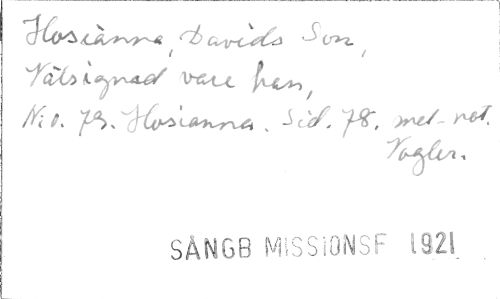 Hosianna, Davids Son,
Välsignad vare han,
N:o. 79. Hosianna. Sid. 78. mel-not.
Vogler.
SÅNGB MISSIONSF 1921